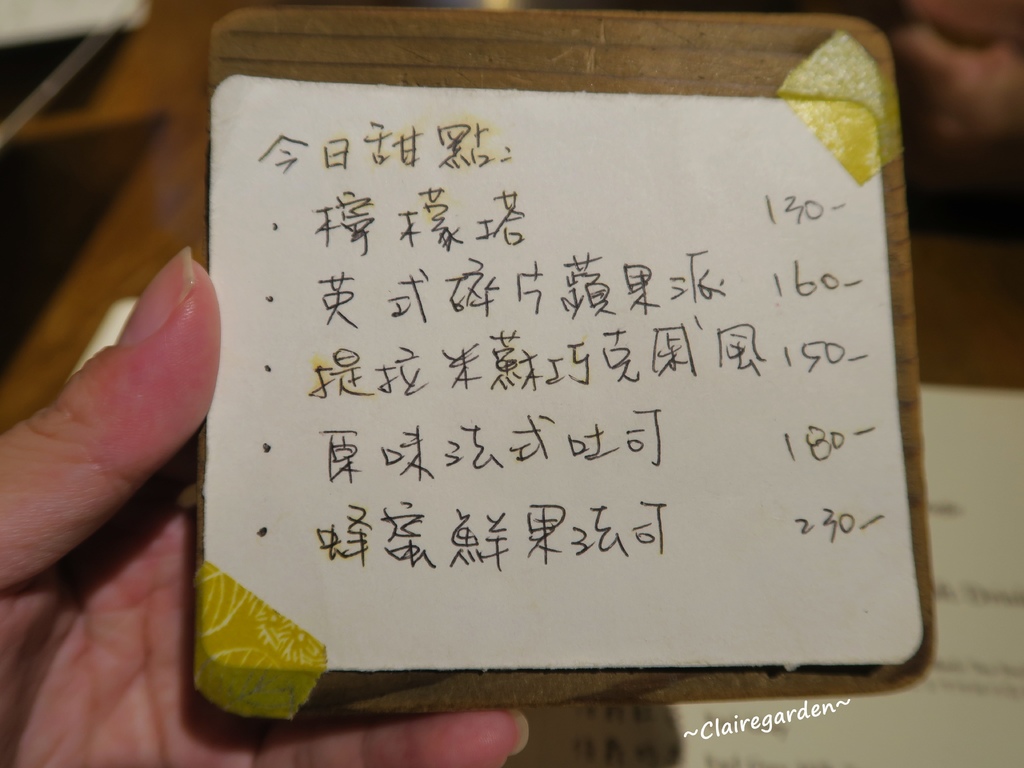 今日甜點:
· 檸檬塔 130-
· 英式碎片蘋果派 160-
· 提拉米蘇巧克力戚風 150-
· 原味法式吐司 180-
· 蜂蜜鮮果法司 230-
~Clairegarden~